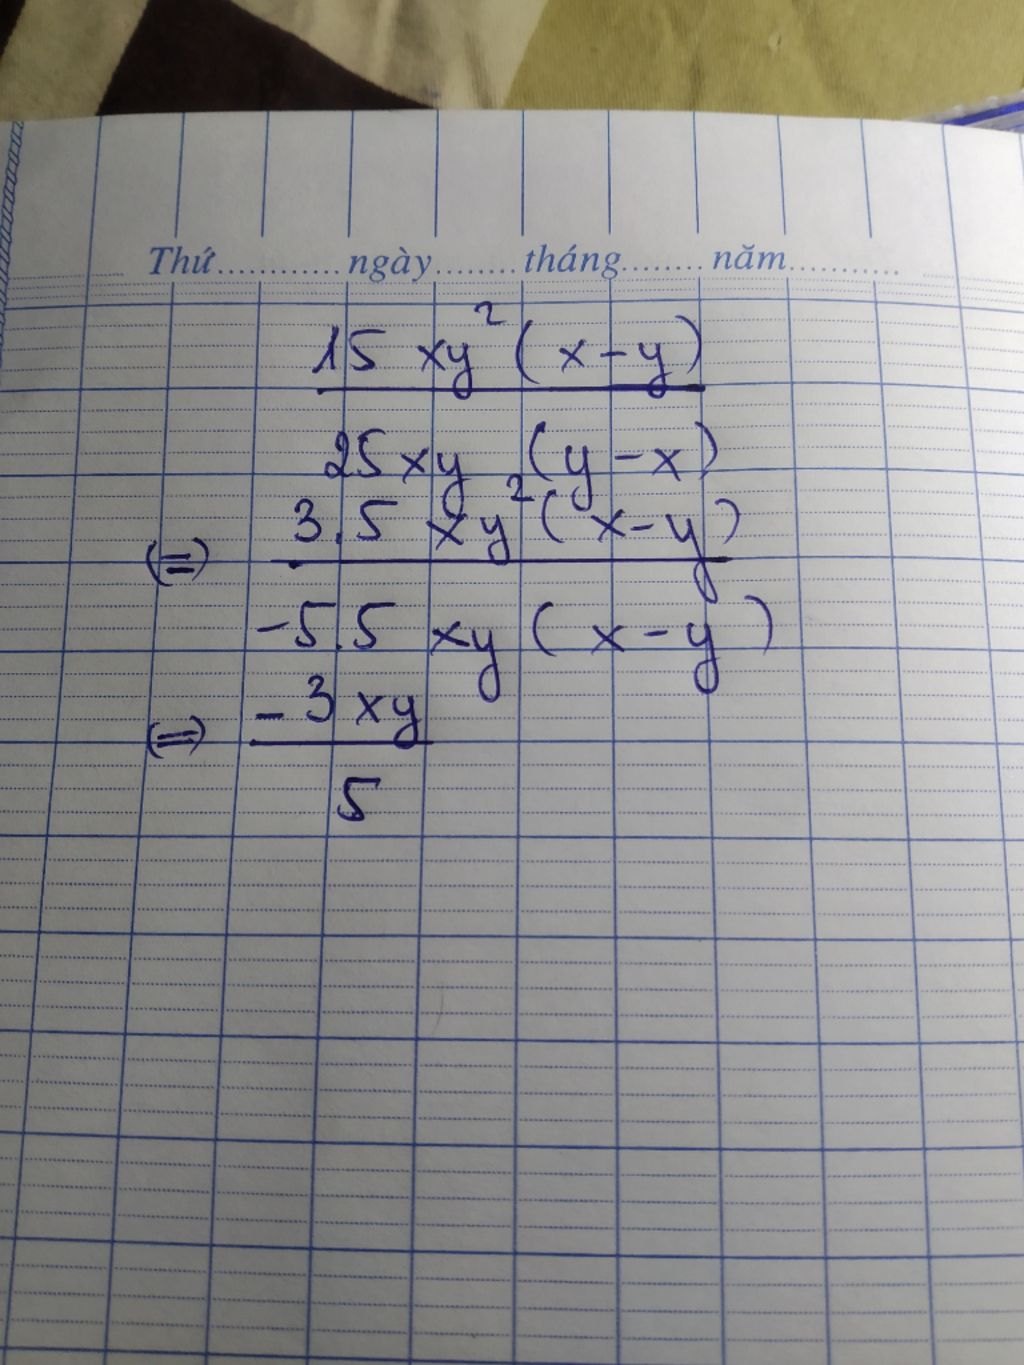 Thứ............ngày........tháng........năm...........
15 xy²(x-y)
25xy (y-x)
3.5 xy²(x-y)
(=)
-5.5 xy (x-y)
-3xy
(=)
5